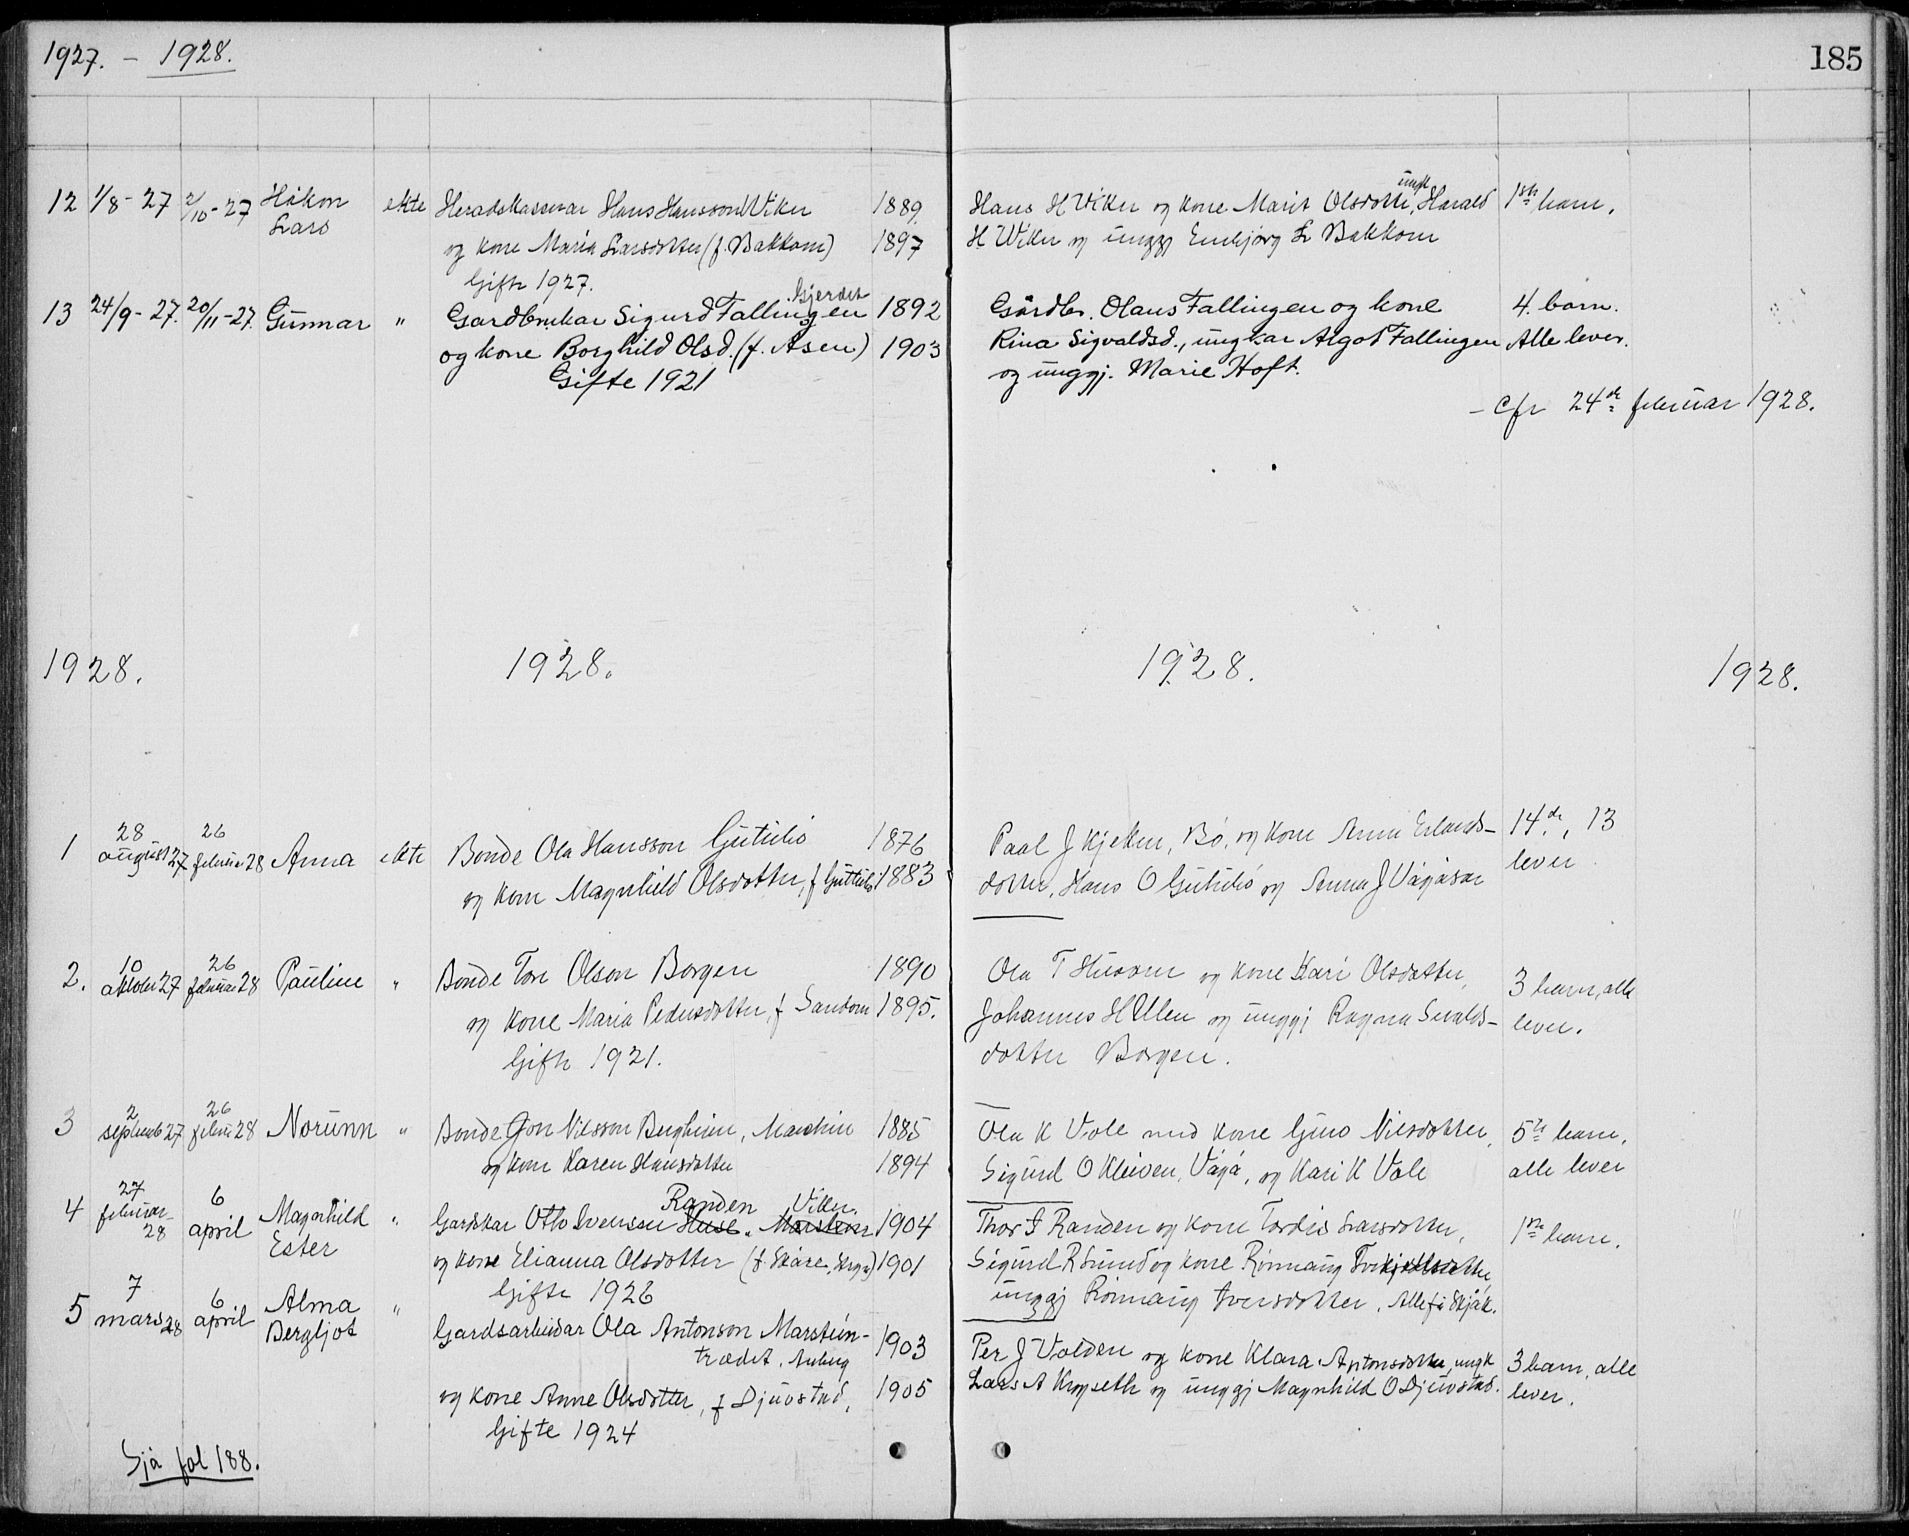 1927. - 1928.
185
12 1/8-27 2/10-27 Håkon Lars ekte Heradskasserar Hans Hansson Viker 1889
og kone Maria Larsdotter (f. Bakkom) 1897
Gifte 1927.
Hans H Viker og kone Marit Olsdotter, ungk Harald
H Viker og unggj Embjørg L Bakkom
1ste barn.
13 24/9-27. 20/11-27. Gunnar " Gardbrukar Sigurd Fallingen Gjerdet 1892
og kone Borghild Olsd. (f. Åsen) 1903
Gifte 1921
Gårdbr. Olaus Fallingen og kone
Rina Sigvaldsd., ungkar Algot Fallingen
og unggj. Marie Hoft.
4. barn.
Alle lever.
- cfr 24de februar 1928.
1928. 1928. 1928. 1928.
1 28 august 27 26 februar 28 Anna ekte Bonde Ola Hansson Guttuliø 1876
og kone Magnhild Olsdotter, f Guttuliø 1883
Paal J Kjekken, Bø, og kone Anna Erlands-
dotter, Hans O Guttuliø og Anna J Vågåsar
14de, 13
lever
2. 10 oktober 27 26 februar 28 Pauline " Bonde Tore Olson Borgen 1890
og kone Maria Pedersdotter, f Sandom 1895.
Gifte 1921.
Ola T Husom og kone Kari Olsdotter,
Johannes H Ullen og unggj Ragna Sivalds-
dotter Borgen.
3 barn, alle
lever.
3 2 septemb 27 26 febru 28 Norunn " Bonde Jon Nilsson Bergheim, Marstein 1885
og kone Karen Hansdotter 1894
Ola K Vole med kone Guro Nilsdotter,
Sigurd O Kleiven, Vågå, og Kari K Vole
5te barn,
alle lever
4 27 februar 28 6 april Magnhild Ester " Gardskar Otto Svensson Huse. Marstein Randen Viken. 1904
og kone Elianna Olsdotter (f. Skåre, Hegra) 1901
Gifte 1926
Thor I Randen og kone Tordis Larsdotter,
Sigurd R Sund og kone Rønnaug Torkjellsdotter,
unggj Rønnaug Iversdotter. Alle frå Skjåk.
1ste barn.
5 7 mars 28 6 april Alma Bergljot " Gardsarbeidar Ola Antonson Marstein-
trædet. 1903
og kone Anne Olsdotter, f Djuvstad, 1905
Gifte 1924
Per J Volden og kone Klara Antonsdotter, ungk
Lars A Krogseth og unggj Magnhild O Djuvstad.
3 barn, alle
lever.
Sjå fol 188.